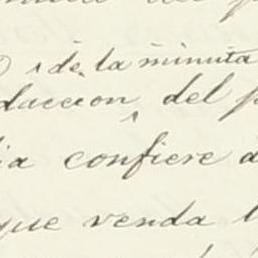 de la minuta
daccion del
confiere
que venda